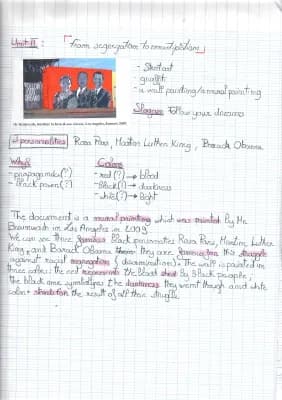 Unit II : "From segregation to emancipation"
- Street art
- graffiti
- a wall painting/a mural painting
Slogan: Follow your dreams
personnalities : Rosa Parks, Martin Luther King, Barack Obama
Why?
- propaganda(?)
- Black power(?)
Colors
- red(?) → blood
- black(?) → darkness
- white(?) → light
The document is a mural painting which was painted by Mr
Brainwash in Los Angeles in 2009.
We can see three famous black personnalities Rosa Parks, Martin Luther
King, and Barack Obama they are famous for this struggle
against racial segregation (discrimination). The wall is painted in
three colors: the red represents the blood shed by Black people,
the black one symbolizes the darkness they went though and white
color the result of all their struggle.